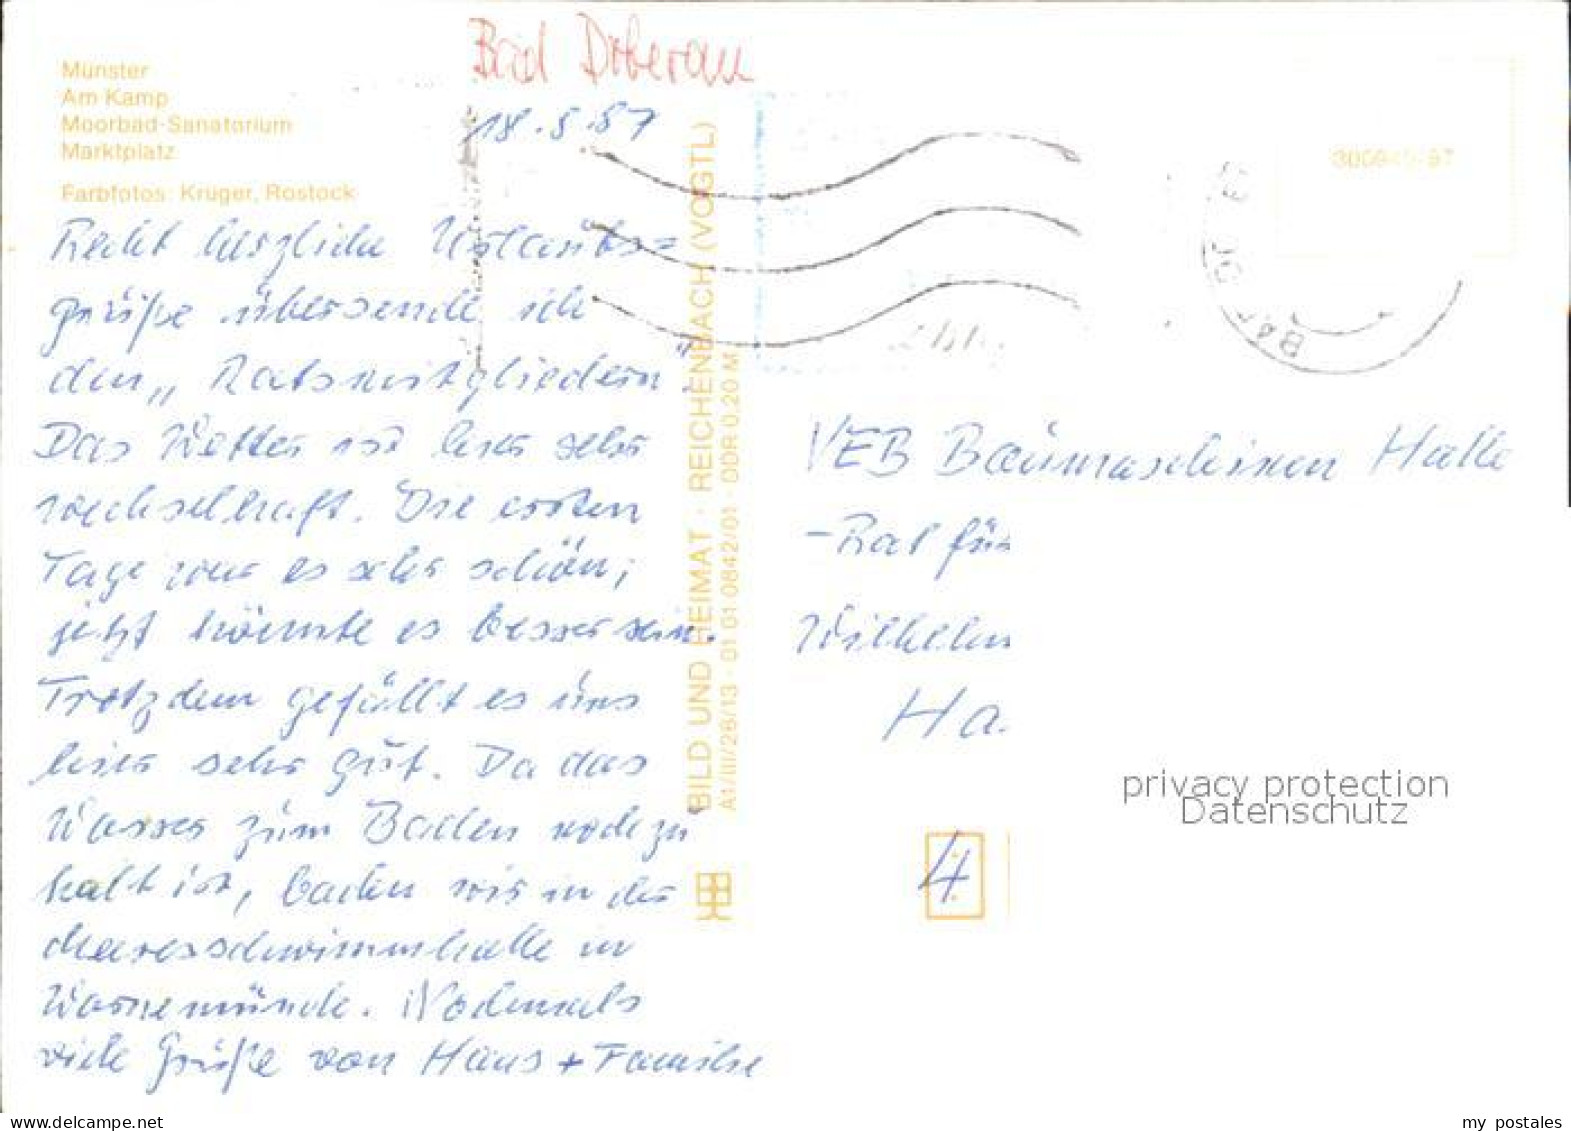 Bad Doberan
18.5.87
Münster
Am Kamp
Moorbad-Sanatorium
Marktplatz
Farbfotos: Krüger, Rostock
Recht herzliche Urlaubs=
grüße übersende ich
den „Ratsmitgliedern".
Das Wetter ist hier sehr
wechselhaft. Die ersten
Tage war es sehr schön;
jetzt könnte es besser sein.
Trotzdem gefällt es uns
hier sehr gut. Da das
Wasser zum Baden noch zu
kalt ist, baden wir in der
Meeresschwimmhalle in
Warnemünde. Nochmals
viele Grüße von Hans + Familie
BILD UND HEIMAT · REICHENBACH (VOGTL)
A1/III/26/13 · 01 01 0842/01 · DDR 0,20 M
VEB Baumaschinen Halle
-Rat für
Wilhelm
Ha
4
privacy protection
Datenschutz
my postales